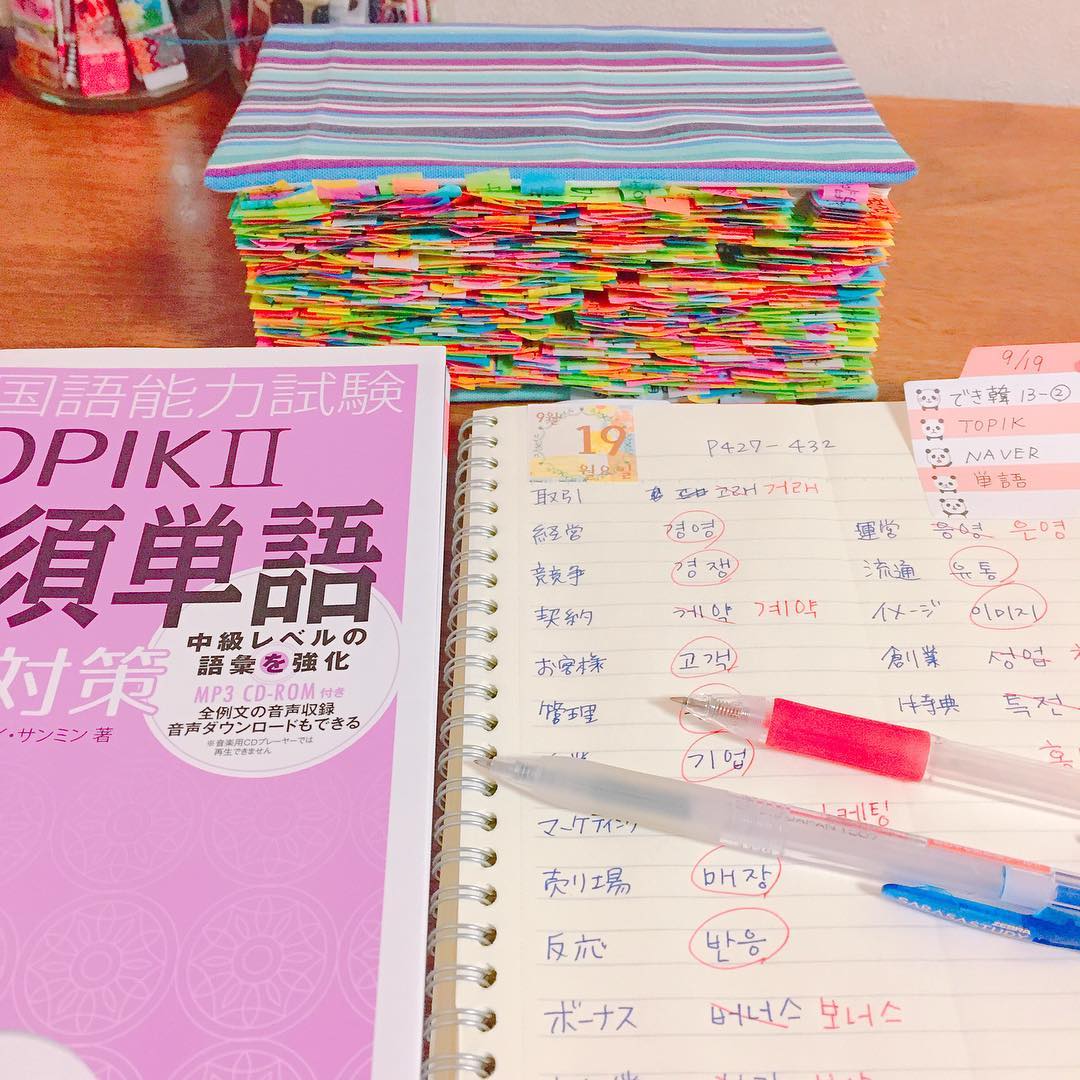 国語能力試験
OPIKⅡ
須単語
対策
中級レベルの
語彙を強化
MP3 CD-ROM付き
全例文の音声収録
音声ダウンロードもできる
※音楽用CDプレーヤーでは
再生できません
イ・サンミン 著
9/19
でき韓 13-②
TOPIK
NAVER
単語
9월
19
월요일
P427-432
取引 고래 거래
経営 경영 運営 응영 운영
競争 경쟁 流通 유통
契約 게약 계약 イメージ 이미지
お客様 고객 創業 상업
管理 特典 특전
기업
マーケティング 케팅
売り場 매장
反応 반응
ボーナス 버너스 보너스
SARASASTUDY
ZEBRA